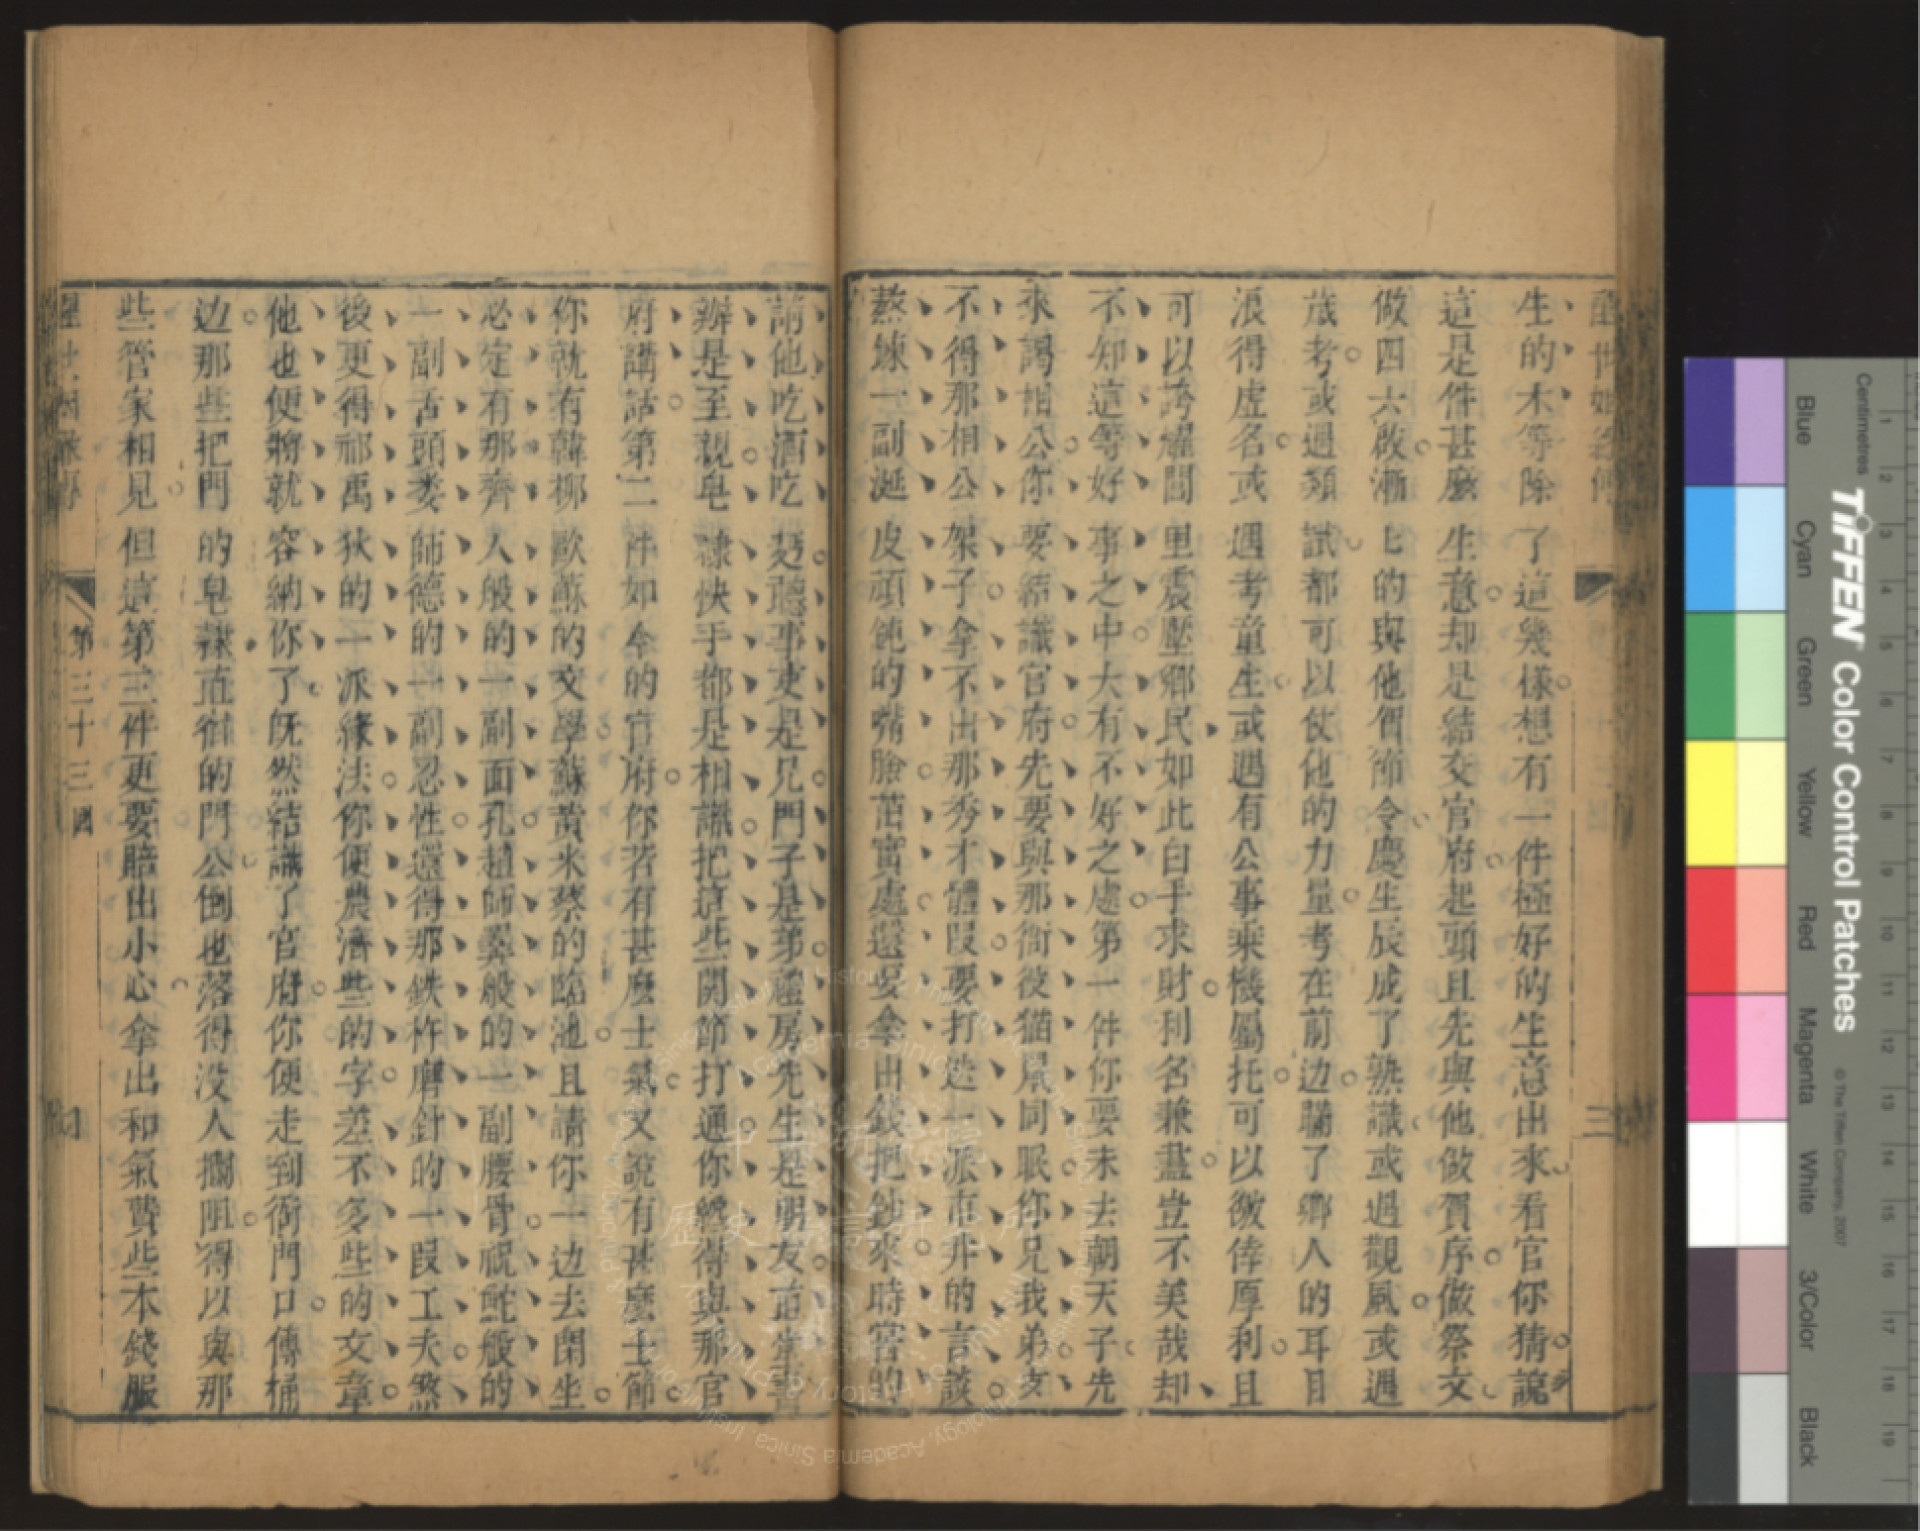 生的木等除了這幾樣想有一件極好的生意出來看官你猜說
這是件甚麼生意却是結交官府起頭且先與他做賀序做祭文
做四六啟漸上的與他賀節令慶生辰成了熟識或遇觀風或遇
歲考或遇類試都可以仗他的力量考在前边瞞了鄉人的耳目
浪得虛名或遇考童生或遇有公事乘機屬托可以徼倖厚利且
可以誇耀閭里震壓鄉民如此白手求財利名兼盡豈不美哉却
不知這等好事之中大有不好之處第一件你要未去朝天子先
來謁相公你要結識官府先要與那衙役猫鼠同眠你兄我弟支
不得那相公架子拿不出那秀才體段要打迭一派市井的言談
熬煉一副涎皮頑鈍的嘴臉苗實處還要拿出錢把鈔來時常的
請他吃酒吃麵聽事吏是兄門子是弟禮房先生是朋友直堂書
辦是至親皂隸快手都是相識把這些關節打通你纔得與那官
府講話第二件如今的官府你若有甚麼士氣又說有甚麼士節
你就有韓柳歐蘇的文學蘇黃米蔡的臨池且請你一边去閑坐
必定有那齊人般的一副面孔趙師𢍰般的一副腰骨祝鮀般的
一副舌頭婁師德的一副忍性還得那鉄杵磨針的一段工夫然
後更得祁禹狄的一派緣法你便農濟些的字差不多些的文章
他也便將就容納你了既然結識了官府你便走到衙門口傳桶
边那些把門的皂隸直宿的門公倒也落得没人攔阻得以與那
些管家相見但這第三件更要賠出小心拿出和氣費些本錢服
第三十三囬
三
Blue Cyan Green Yellow Red Magenta White 3/Color Black
TIFFEN Color Control Patches
© The Tiffen Company, 2007
Centimetres 1 2 3 4 5 6 7 8 9 10 11 12 13 14 15 16 17 18 19